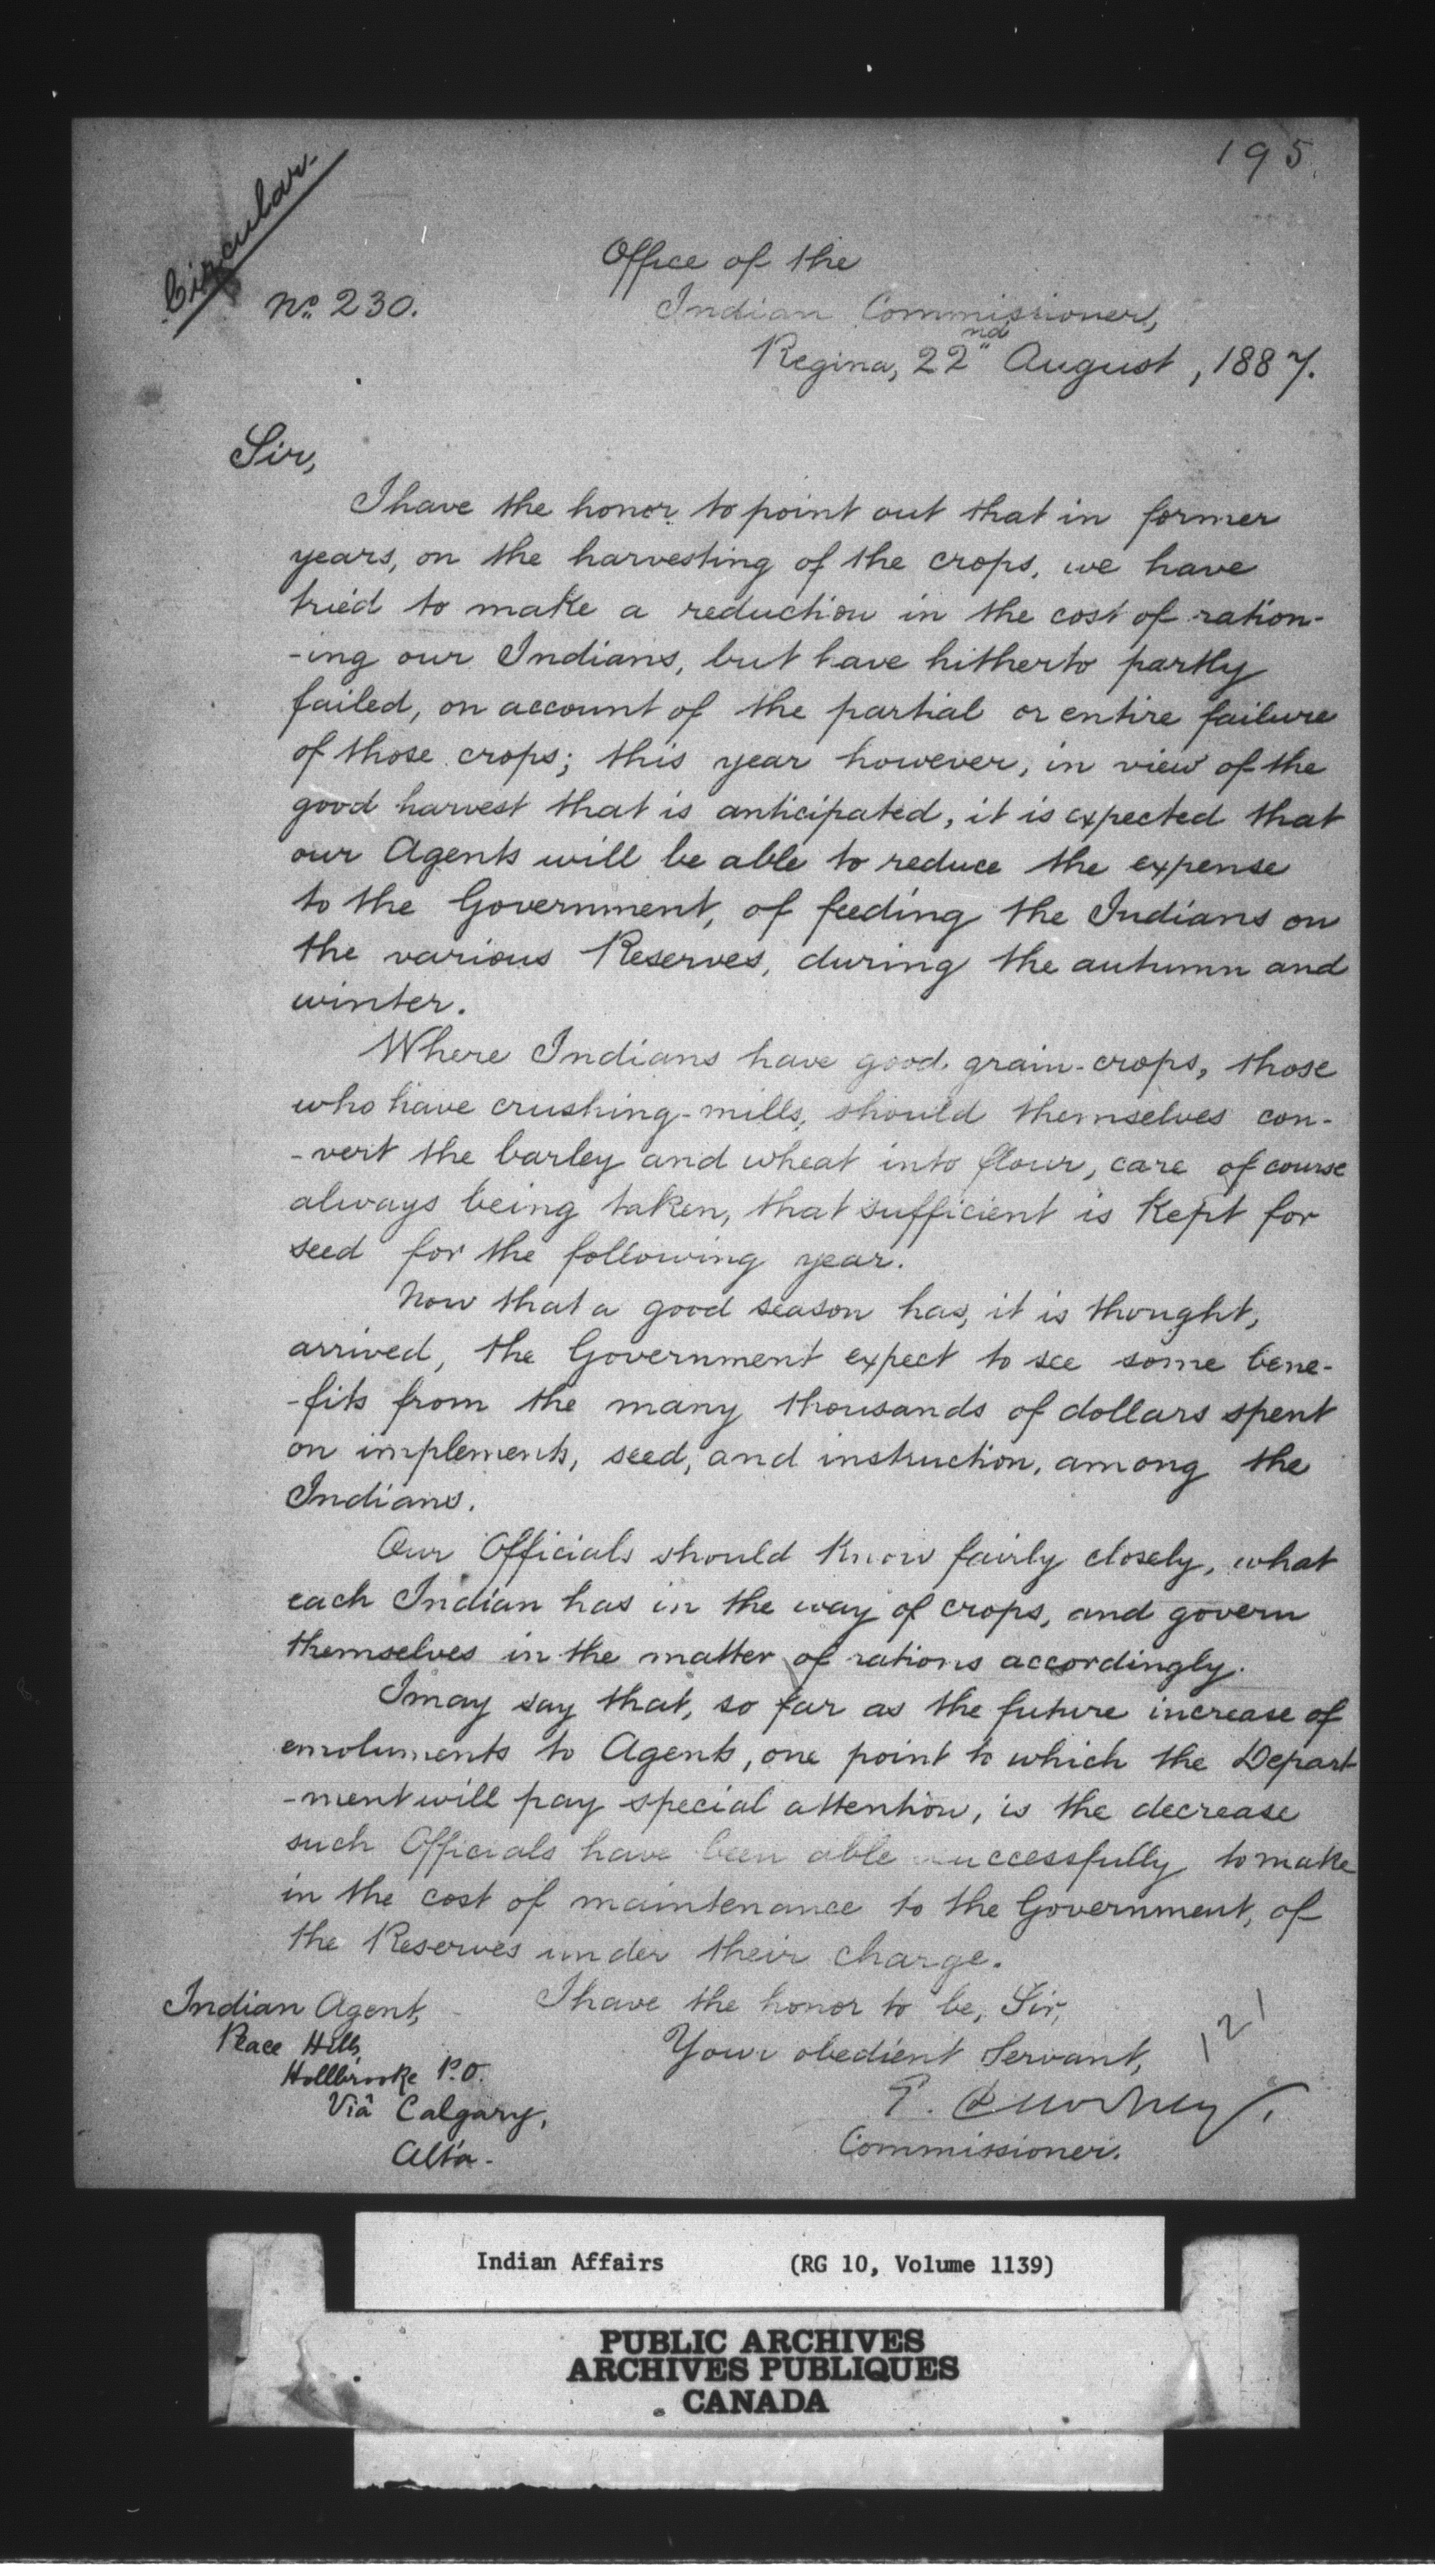 195.
Circular.
No. 230.
Office of the
Indian Commissioner,
Regina, 22nd August, 1887.
Sir,
I have the honor to point out that in former
years, on the harvesting of the crops, we have
tried to make a reduction in the cost of ration-
-ing our Indians, but have hitherto partly
failed, on account of the partial or entire failure
of those crops; this year however, in view of the
good harvest that is anticipated, it is expected that
our Agents will be able to reduce the expense
to the Government, of feeding the Indians on
the various Reserves, during the autumn and
winter.
Where Indians have good grain-crops, those
who have crushing-mills, should themselves con-
-vert the barley and wheat into flour, care of course
always being taken, that sufficient is kept for
seed for the following year.
Now that a good season has, it is thought,
arrived, the Government expect to see some bene-
-fits from the many thousands of dollars spent
on implements, seed, and instruction, among the
Indians.
Our Officials should know fairly closely, what
each Indian has in the way of crops, and govern
themselves in the matter of rations accordingly.
I may say that, so far as the future increase of
emoluments to Agents, one point to which the Depart-
-ment will pay special attention, is the decrease
such Officials have been able successfully to make
in the cost of maintenance to the Government, of
the Reserves under their charge.
I have the honor to be, Sir,
Your obedient Servant,
Commissioner.
Indian Agent,
Peace Hills
Hollbrooke P.O.
Viâ Calgary,
Alta.
121
Indian Affairs (RG 10, Volume 1139)
PUBLIC ARCHIVES
ARCHIVES PUBLIQUES
CANADA